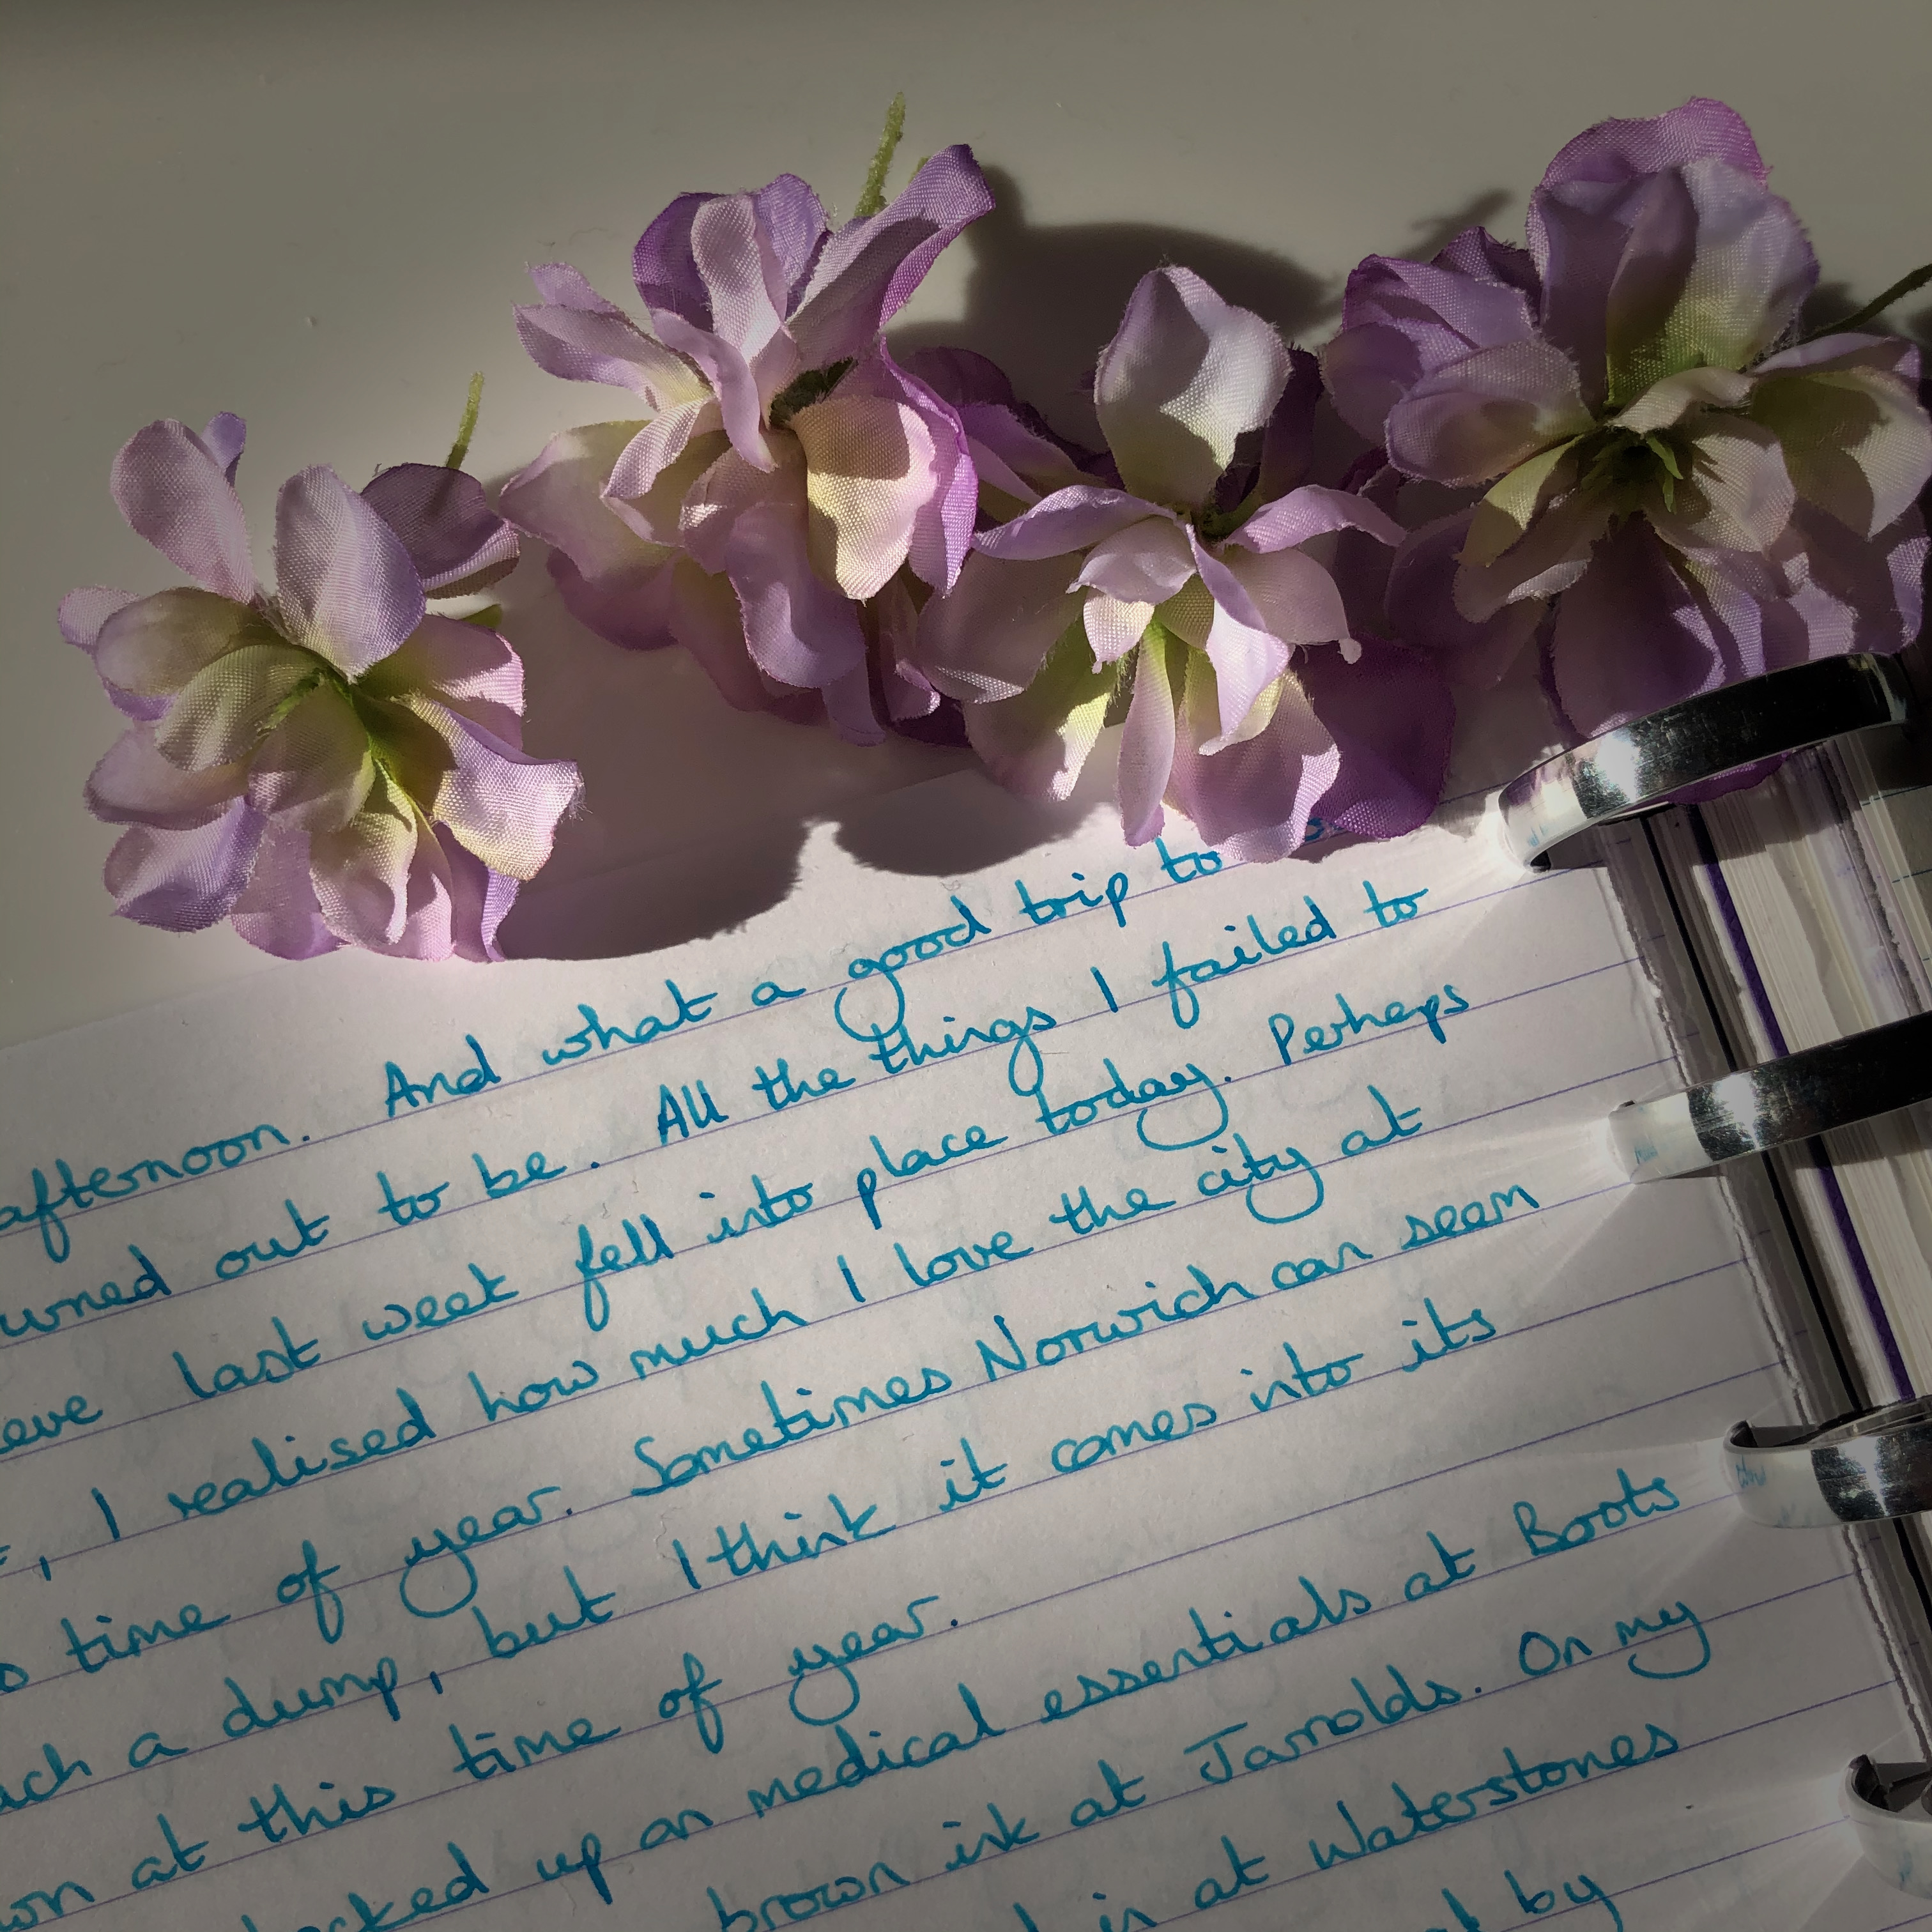 afternoon. And what a good trip to
out to be. All the things I failed to
last week fell into place today. Perhaps
, I realised how much I love the city at
time of year. Sometimes Norwich can seem
a dump, but I think it comes into its
at this time of year.
up on medical essentials at Boots
brown ink at Jarrolds. On my
at Waterstones
by